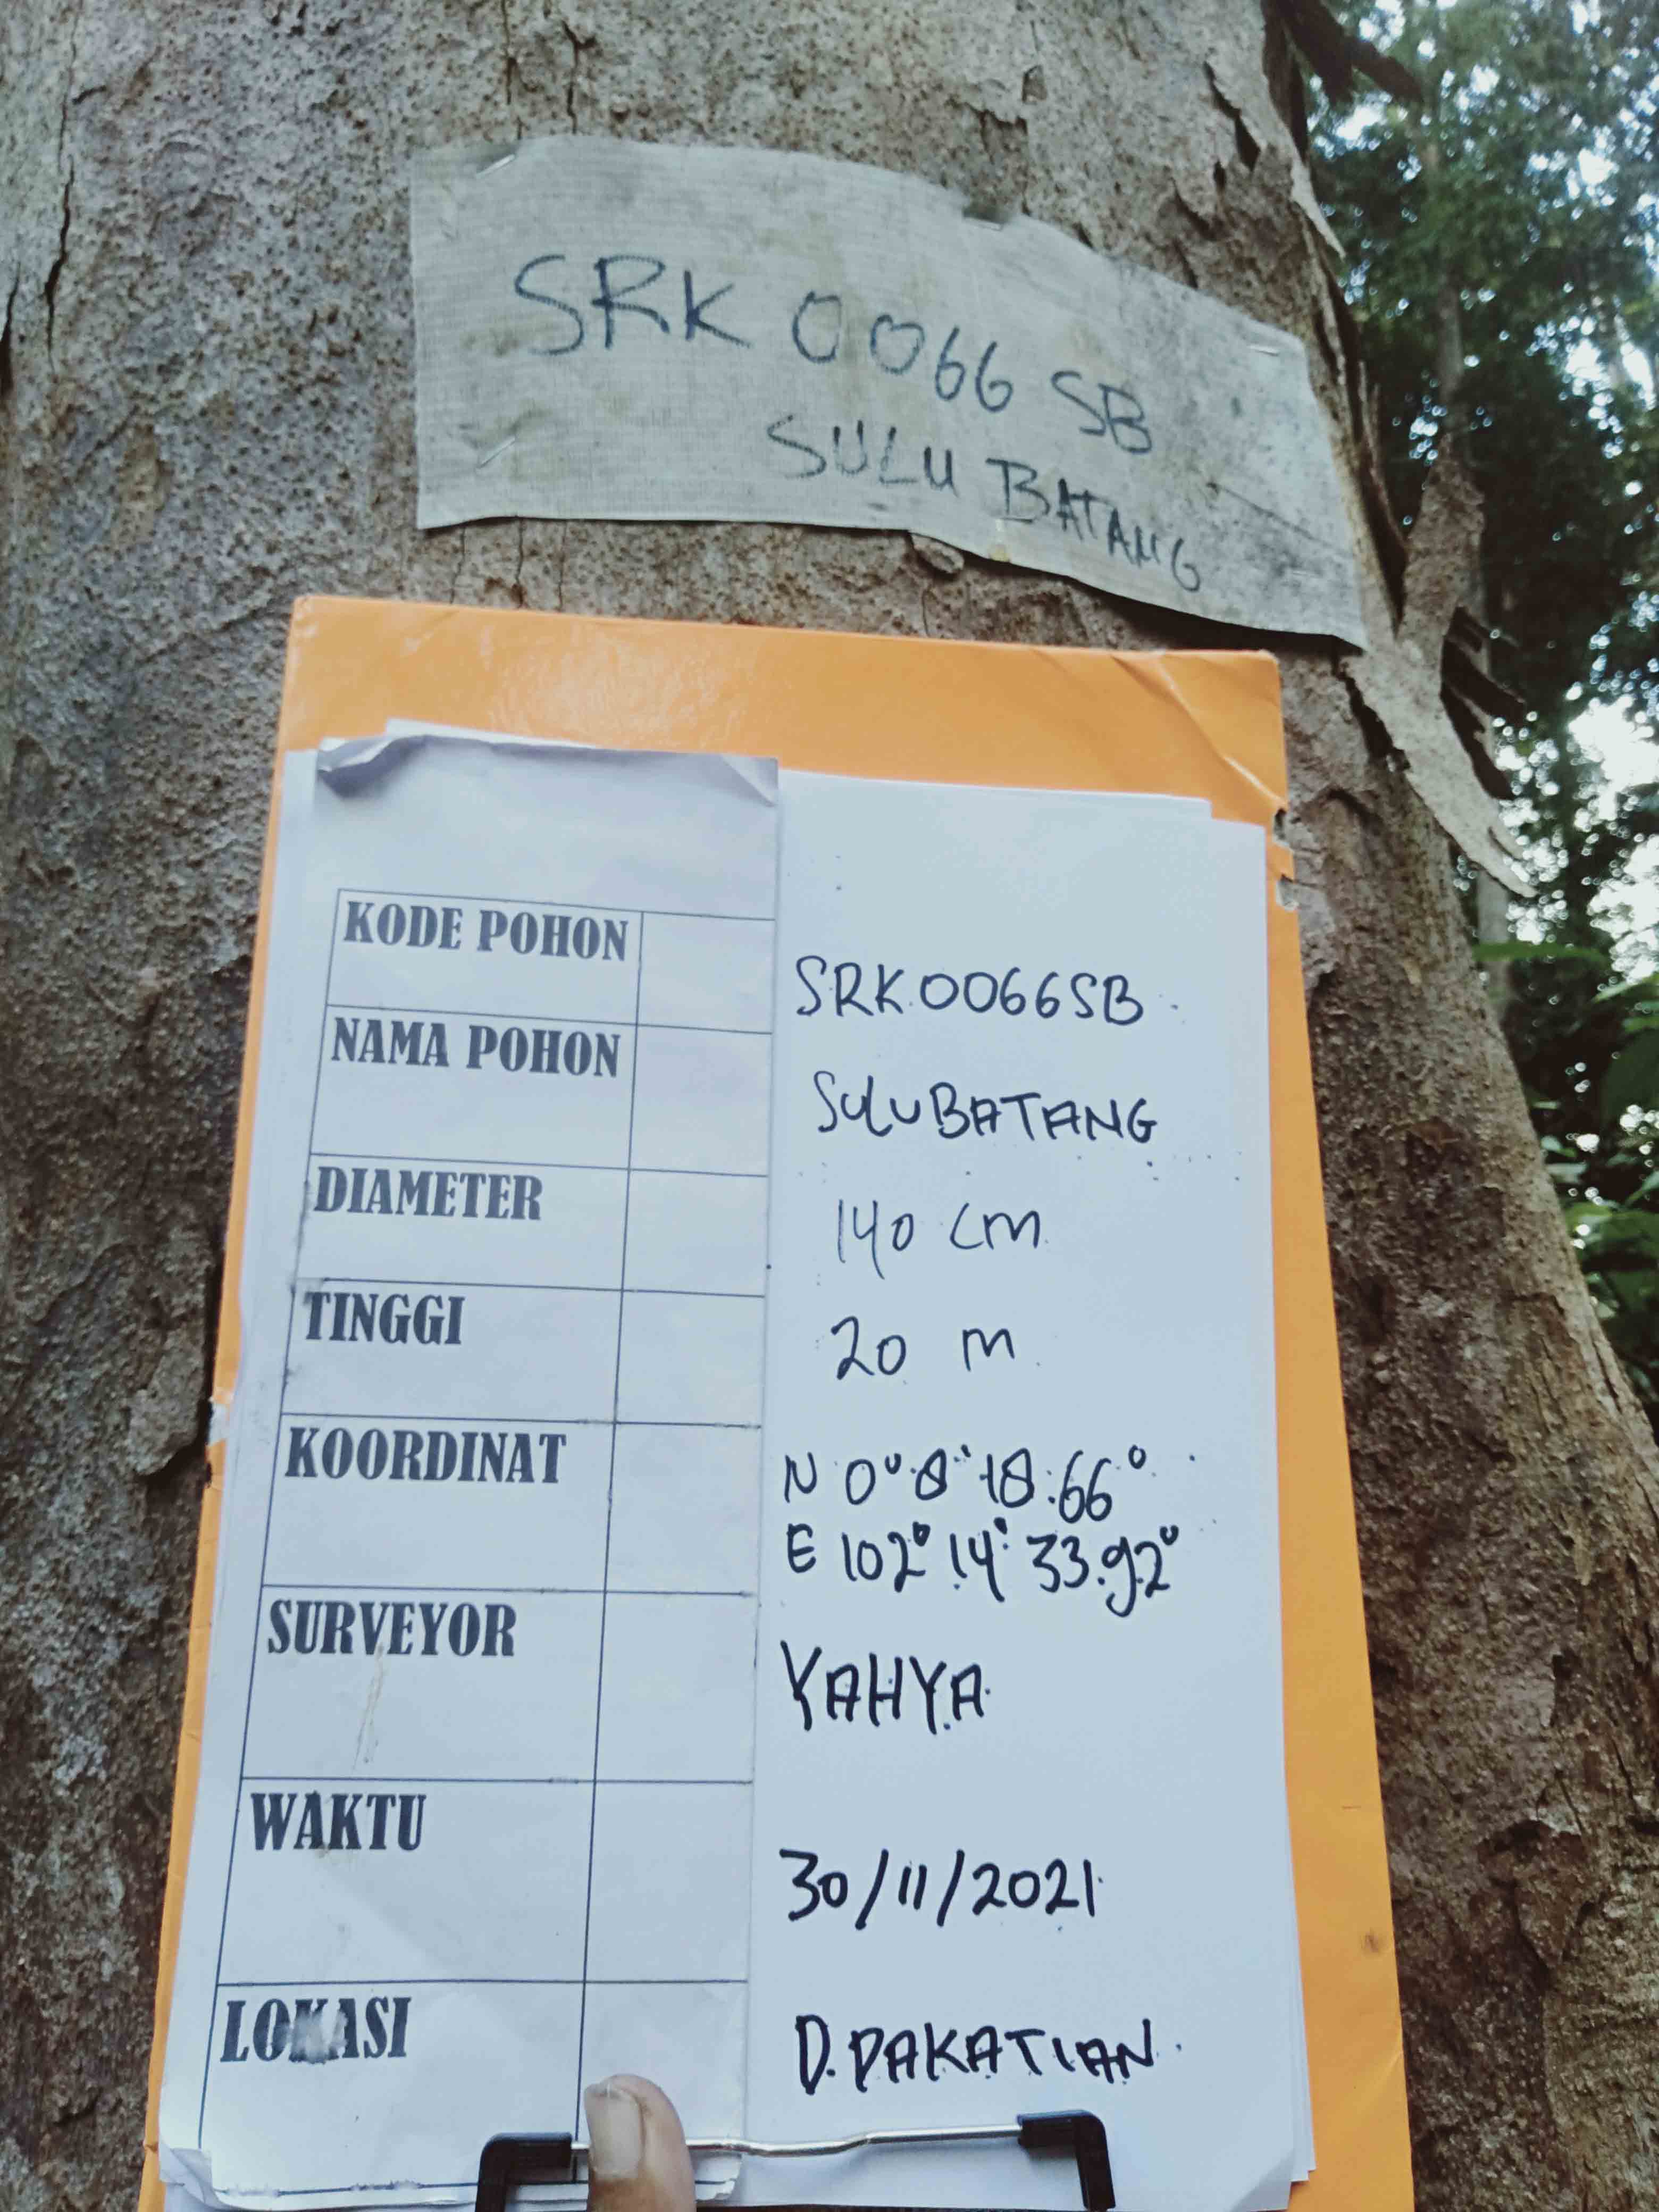 SRK 0066 SB
SULU BATANG
KODE POHON SRK0066SB
NAMA POHON SULUBATANG
DIAMETER 140 cm
TINGGI 20 m
KOORDINAT N 0° 8' 18.66°
E 102° 14' 33.92°
SURVEYOR YAHYA
WAKTU 30/11/2021
LOKASI D. PAKATIAN